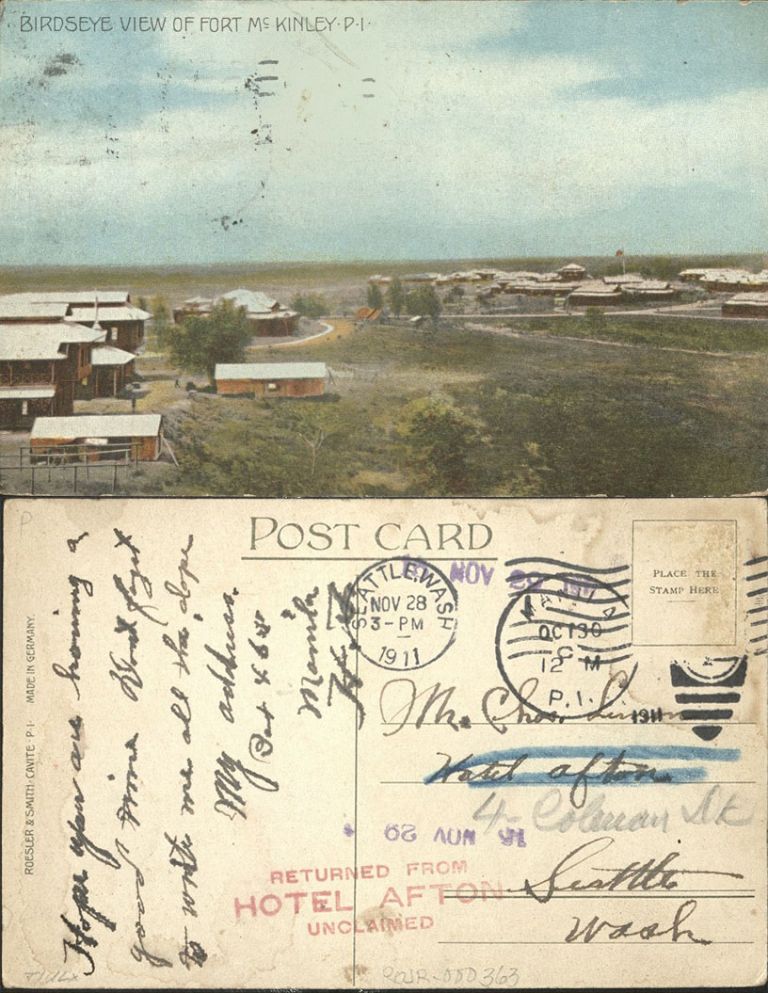 BIRDSEYE VIEW OF FORT Mc KINLEY·P·I·
POST CARD
PLACE THE
STAMP HERE
SEATTLE, WASH
NOV 28
3-PM
1911
NOV 29
MANILA
OCT 30
12 M
P.I.
1911
Hope you are having a
good time Dont forget
to write me all the dope
My address.
Box 468
Manila
P.I.
Mr. Chas.
Hotel Afton
4- Colman Dk
Seattle
Wash
NOV 29
RETURNED FROM
HOTEL AFTON
UNCLAIMED
ROESLER & SMITH·CAVITE·P·I· MADE IN GERMANY.